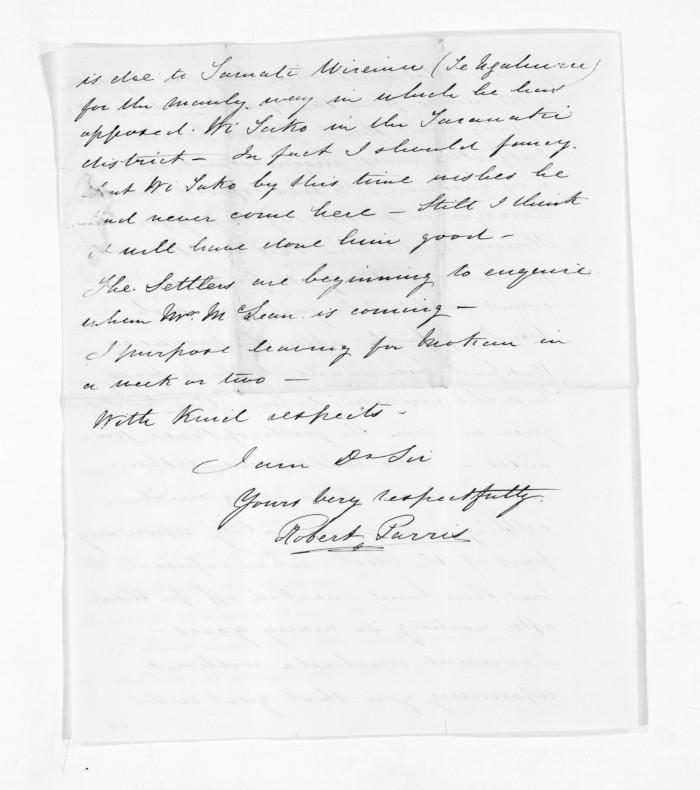 is due to Tamati Wiremu (Te Ngahuru)
for the manly way in which he has
opposed Wi Tako in the Taranaki
district - In fact I should fancy
that Wi Tako by this time wishes he
had never come here - Still I think
it will have done him good -
The Settlers are beginning to enquire
when Mr. McLean is coming -
I purpose leaving for Mokau in
a week or two -
With Kind respects -
I am Dr Sir
Yours very respectfully
Robert Parris